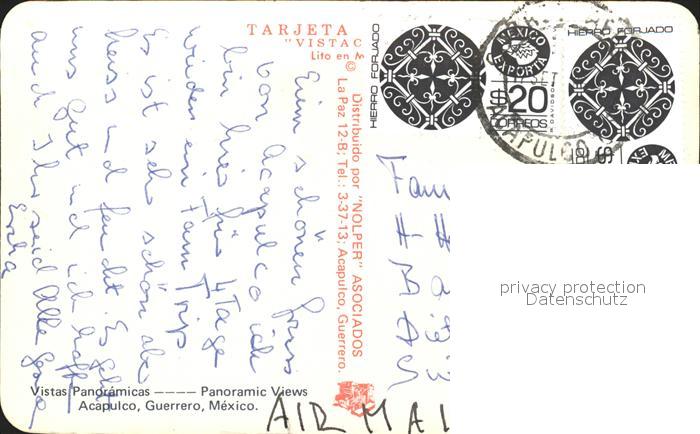 TARJETA
"VISTAC
Lito en M
©
Distribuido por "NOLPER" ASOCIADOS
La Paz 12-B; Tel.: 3-37-13; Acapulco, Guerrero.
HIERRO FORJADO
MEXICO
EXPORTA
$20
CORREOS
HIERRO FORJADO
ACAPULCO
Einen schönen Gruss
von Acapulco ich
bin hier für 4 Tage
wieder ein Fam Trip
Es ist sehr schön aber
heiss und feucht Es geht
uns gut und ich hoffe
auch Ihr seid Alle
Fam
privacy protection
Datenschutz
Vistas Panorámicas ---- Panoramic Views
Acapulco, Guerrero, México.
AIR MAI